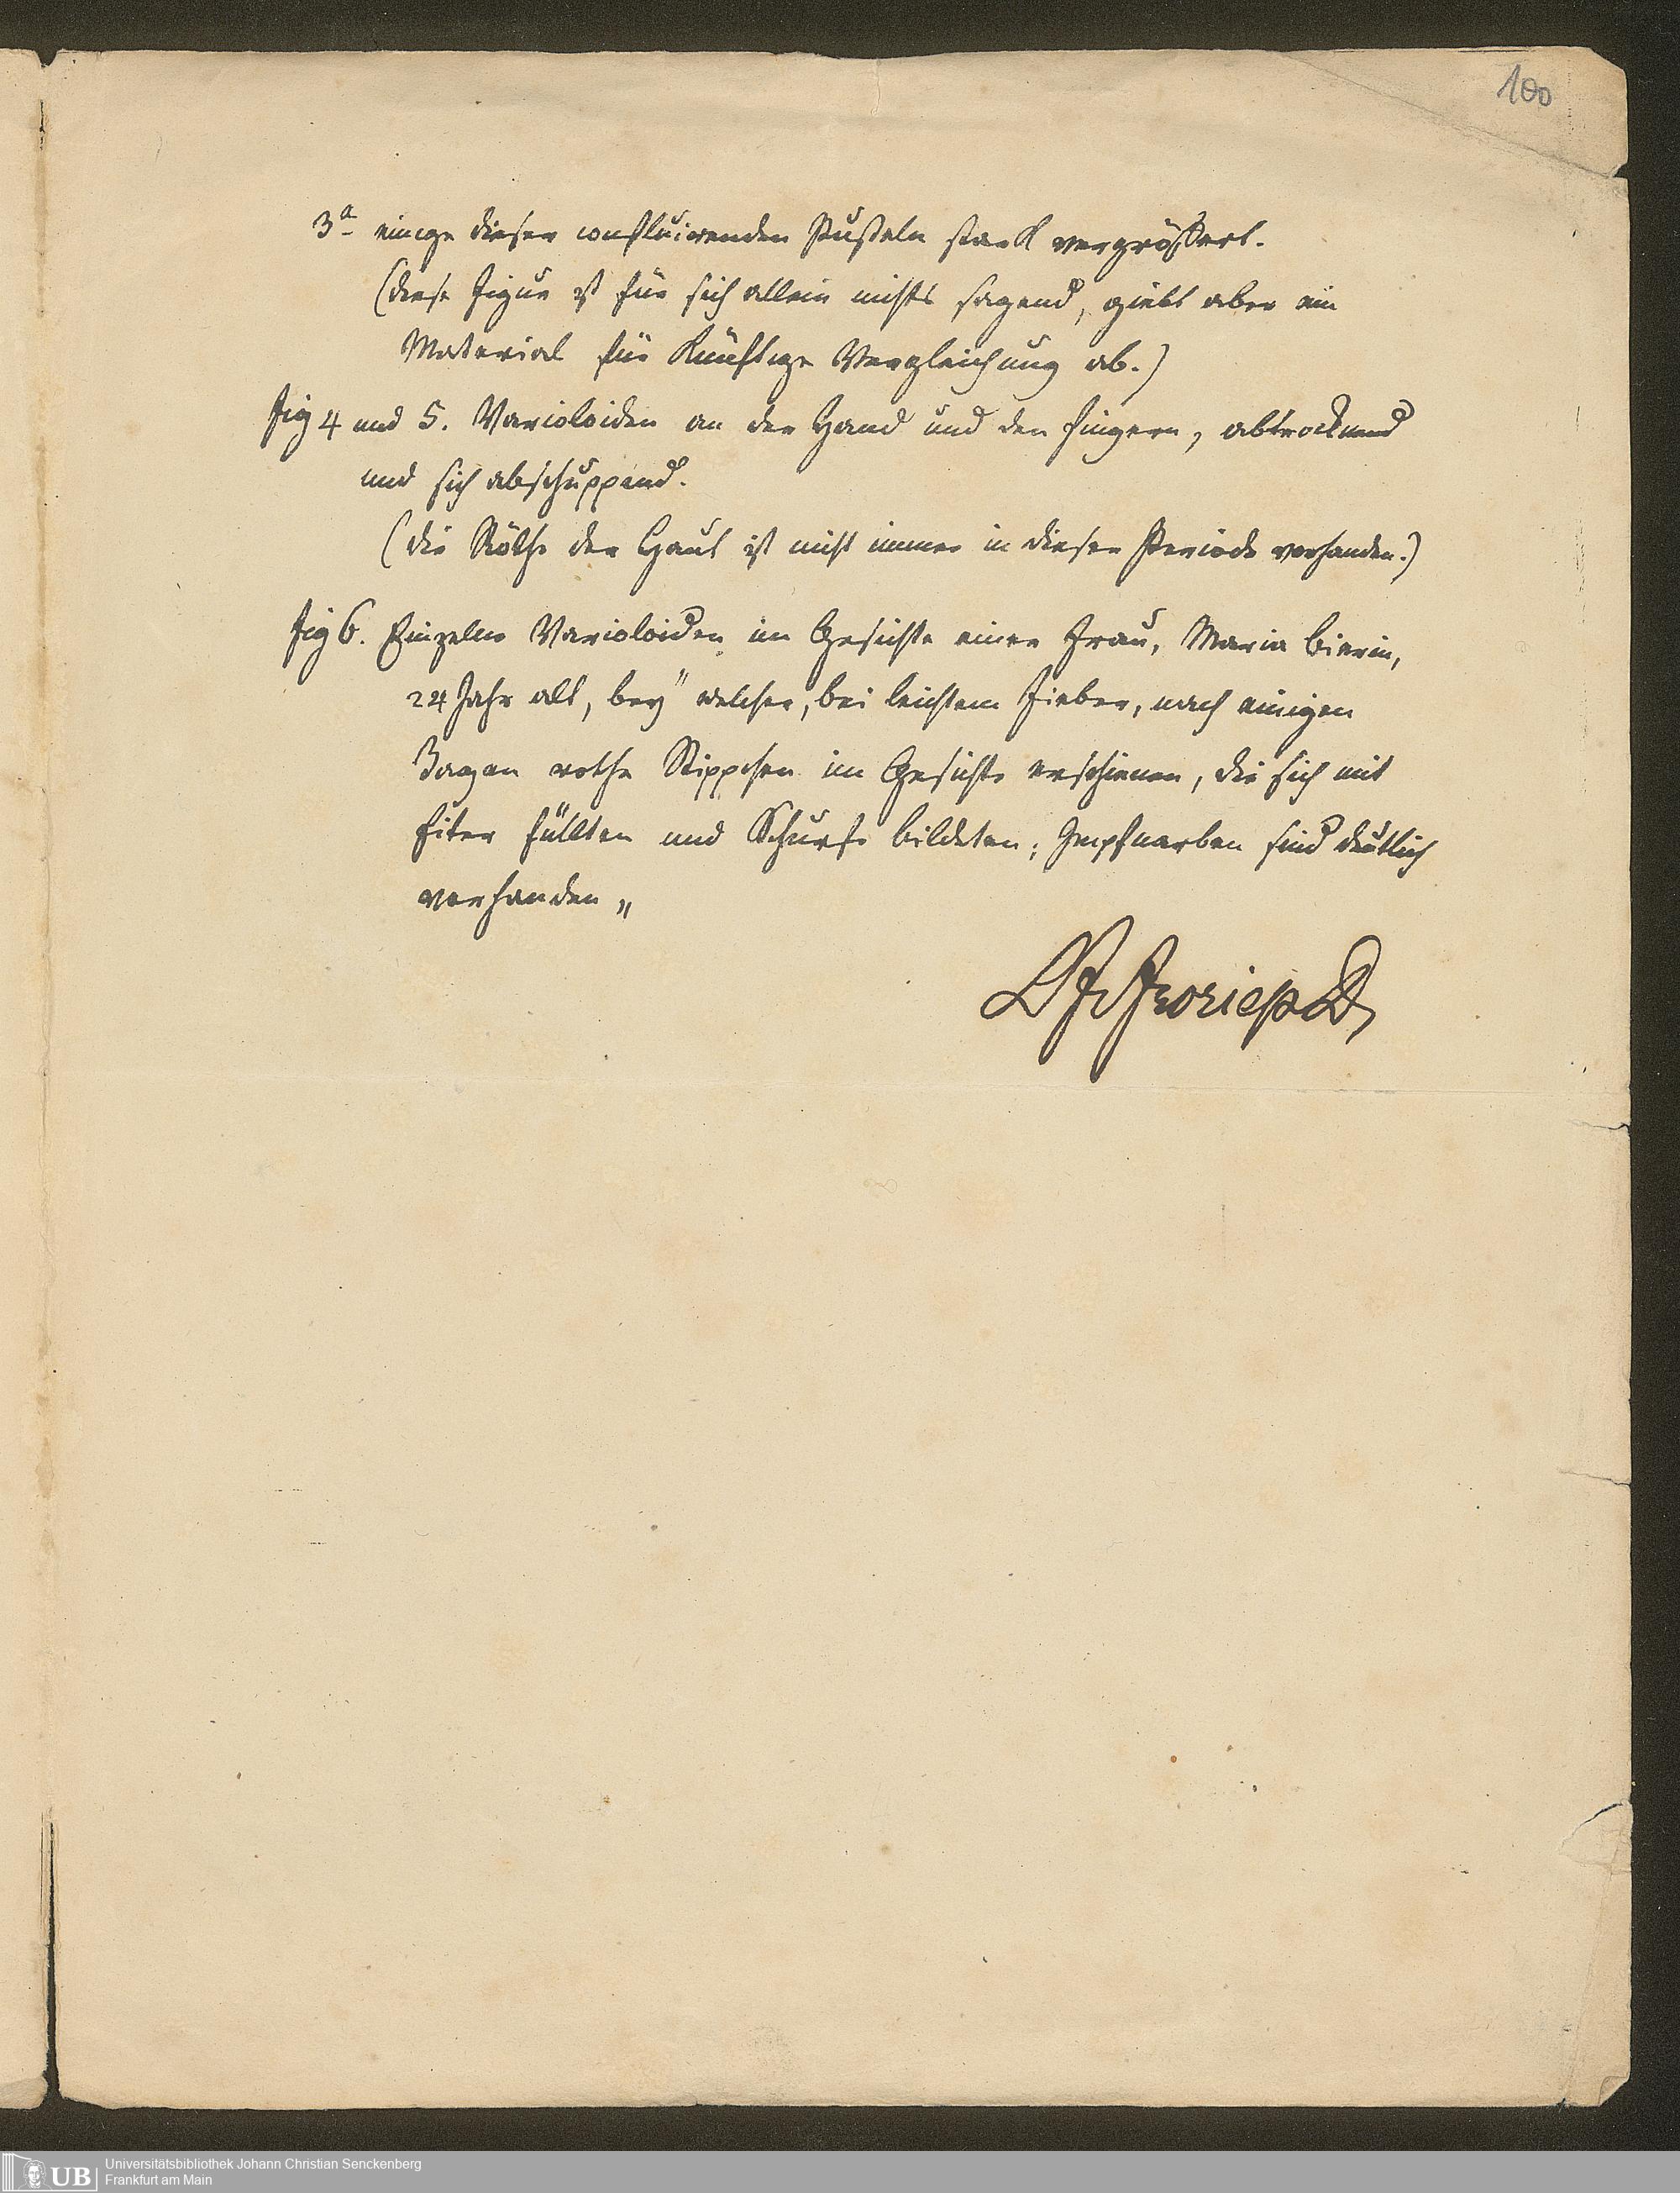 100
3a einige dieser confluirenden Pusteln stark vergrößert.
(diese Figur ist für sich allein nichts sagend, giebt aber ein
Material für künftige Vergleichung ab.)
Fig 4 und 5. Varioloiden an der Hand und den Fingern, abtrocknend
und sich abschuppend.
(die Röthe der Haut ist nicht immer in dieser Periode vorhanden.)
Fig 6. Einzelne Varioloiden im Gesichte einer Frau, Maria Bierin,
24 Jahr alt, bey" welcher, bei leichtem Fieber, nach einigen
Tagen rothe Stippchen im Gesichte erschienen, die sich mit
Eiter füllten und Schurfe bildeten; Impfnarben sind deutlich
vorhanden „
LFvFroriep D
UB Universitätsbibliothek Johann Christian Senckenberg
Frankfurt am Main